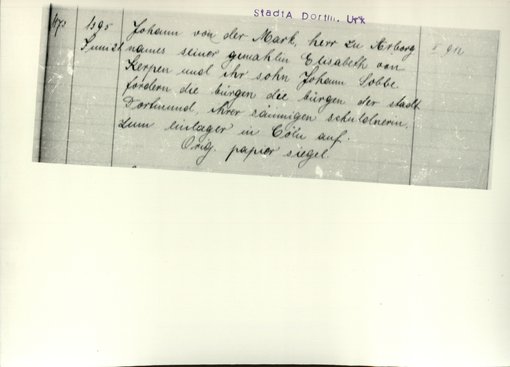 StadtA Dortm. Urk
1395 Johann von der Mark, herr zu Arborg
Juni 21 namens seiner gemahlin Elisabeth von
Kerpen und ihr sohn Johann Sobbe
fordern die bürgen die bürgen der stadt
Dortmund, ihrer säumigen schuldnerin,
zum einlager in Cöln auf.
Orig. papier siegel.